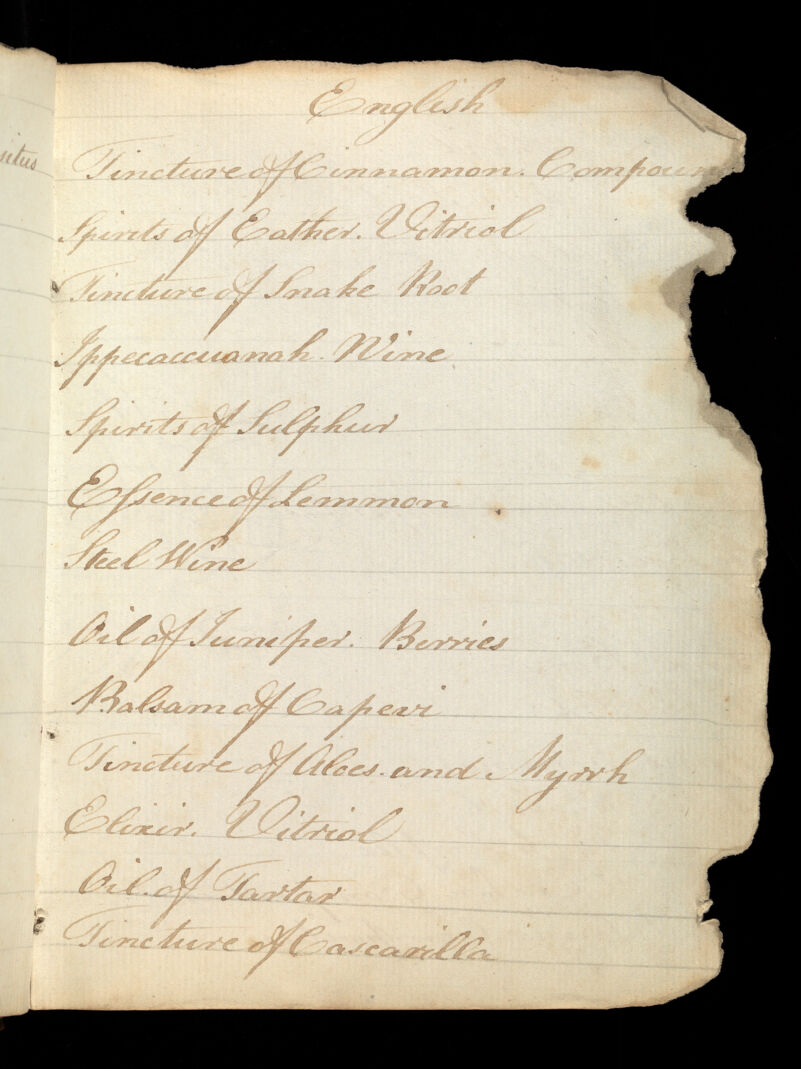 English
situs
Tincture of Cinnamon. Compoun
Spirits of Eather. Vitriol
Tincture of Snake Root
Ippecaccuanah. Wine
Spirits of Sulphur
Essence of Lemmon
Steel Wine
Oil of Juniper. Berries
Balsam of Capevi
Tincture of Aloes. and Myrrh
Elixir. Vitriol
Oil. of Tartar
Tincture of Cascarilla